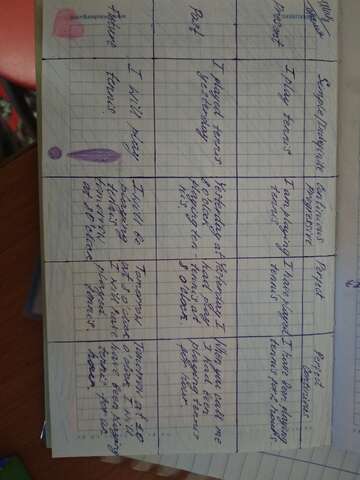 Simple/Indefinite
Continuous
Progressive
Perfect
Perfect
Continuous
Present
I play tennis
I am playing
tennis
I have played
tennis
I have been playing
tennis for 2 hours.
Past
I played tennis
yesterday
Yesterday at
8 o'clock
playing ten
nis
Yesterday I
had play
tennis at
8 o'clock
When you call me
I had been
playing tennis
for hour.
Future
I will play
tennis
I will be
playing
tennis
tomorrow
at 10 o'clock
Tomorrow
at 10 o'clock
I will have
played
tennis.
Tomorrow at 10
o'clock I will
have been playing
tennis for an
hour.